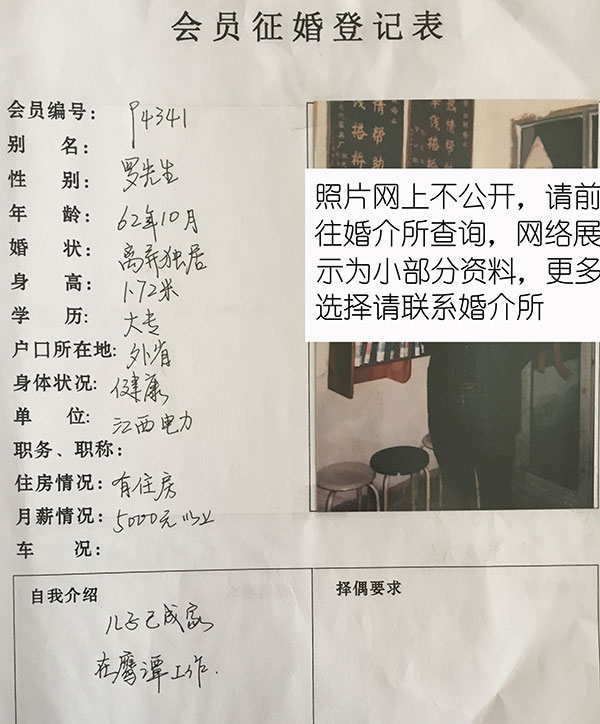 会员征婚登记表
会员编号: P4341
别 名:
性 别: 罗先生
年 龄: 62年10月
婚 状: 离异独居
身 高: 1.72米
学 历: 大专
户口所在地: 外省
身体状况: 健康
单 位: 江西电力
职务、职称:
住房情况: 有住房
月薪情况: 5000元以上
车 况:
情帮助
线搭桥
照片网上不公开，请前
往婚介所查询，网络展
示为小部分资料，更多
选择请联系婚介所
自我介绍
儿子已成家
在鹰潭工作.
择偶要求